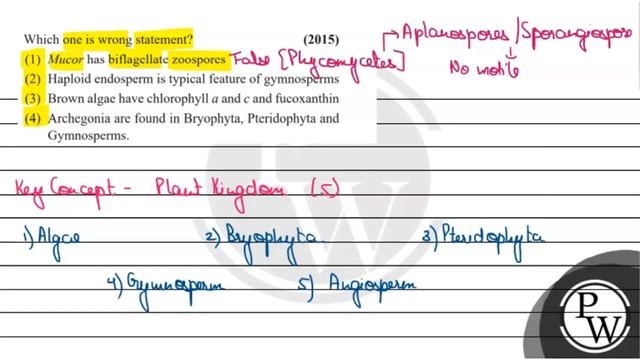 Which one is wrong statement? (2015)
→ Aplanospores / Sporangiospore
(1) Mucor has biflagellate zoospores False [Phycomycetes]
↓
No motile
(2) Haploid endosperm is typical feature of gymnosperms
(3) Brown algae have chlorophyll a and c and fucoxanthin
(4) Archegonia are found in Bryophyta, Pteridophyta and
Gymnosperms.
Key Concept - Plant Kingdom (5)
1) Algae 2) Bryophyta 3) Pteridophyta
4) Gymnosperm 5) Angiosperm
P
W